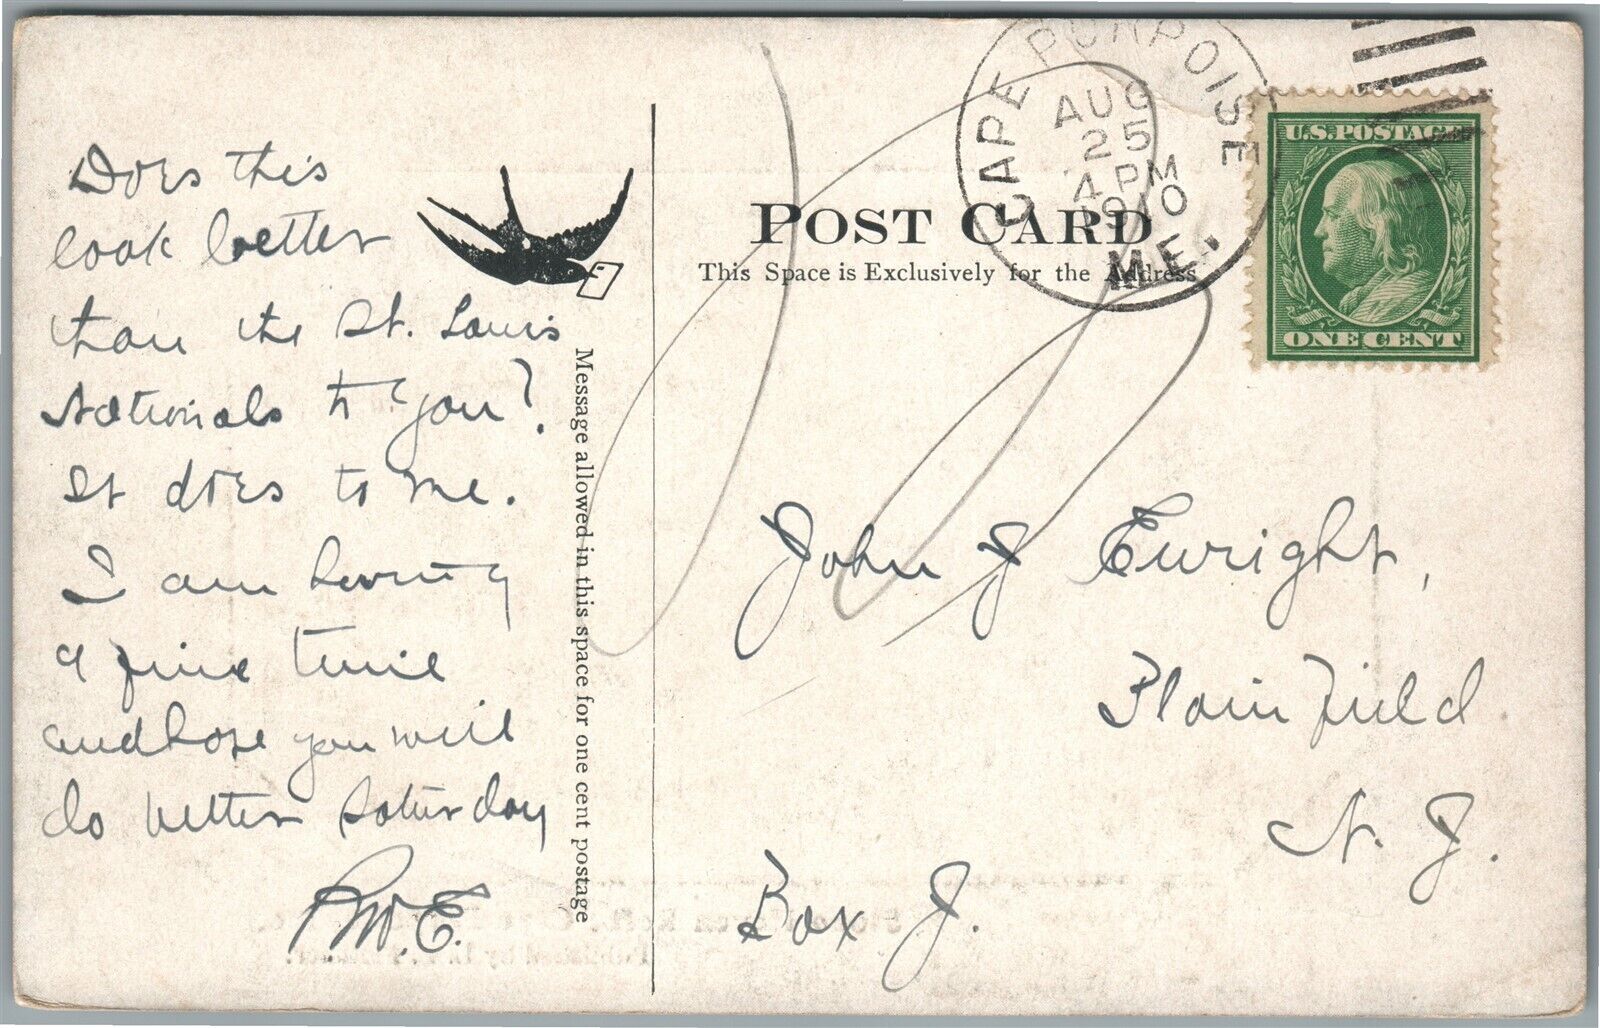 Does this
look better
than the St. Louis
Nationals to you?
It does to me.
I am having
a fine time
and hope you will
do better Saturday
R.W.E.
Message allowed in this space for one cent postage
CAPE PORPOISE
AUG
25
4 PM
1910
ME.
POST CARD
This Space is Exclusively for the Address
U.S. POSTAGE
ONE CENT
John J Enright,
Plainfield
N. J.
Box J.